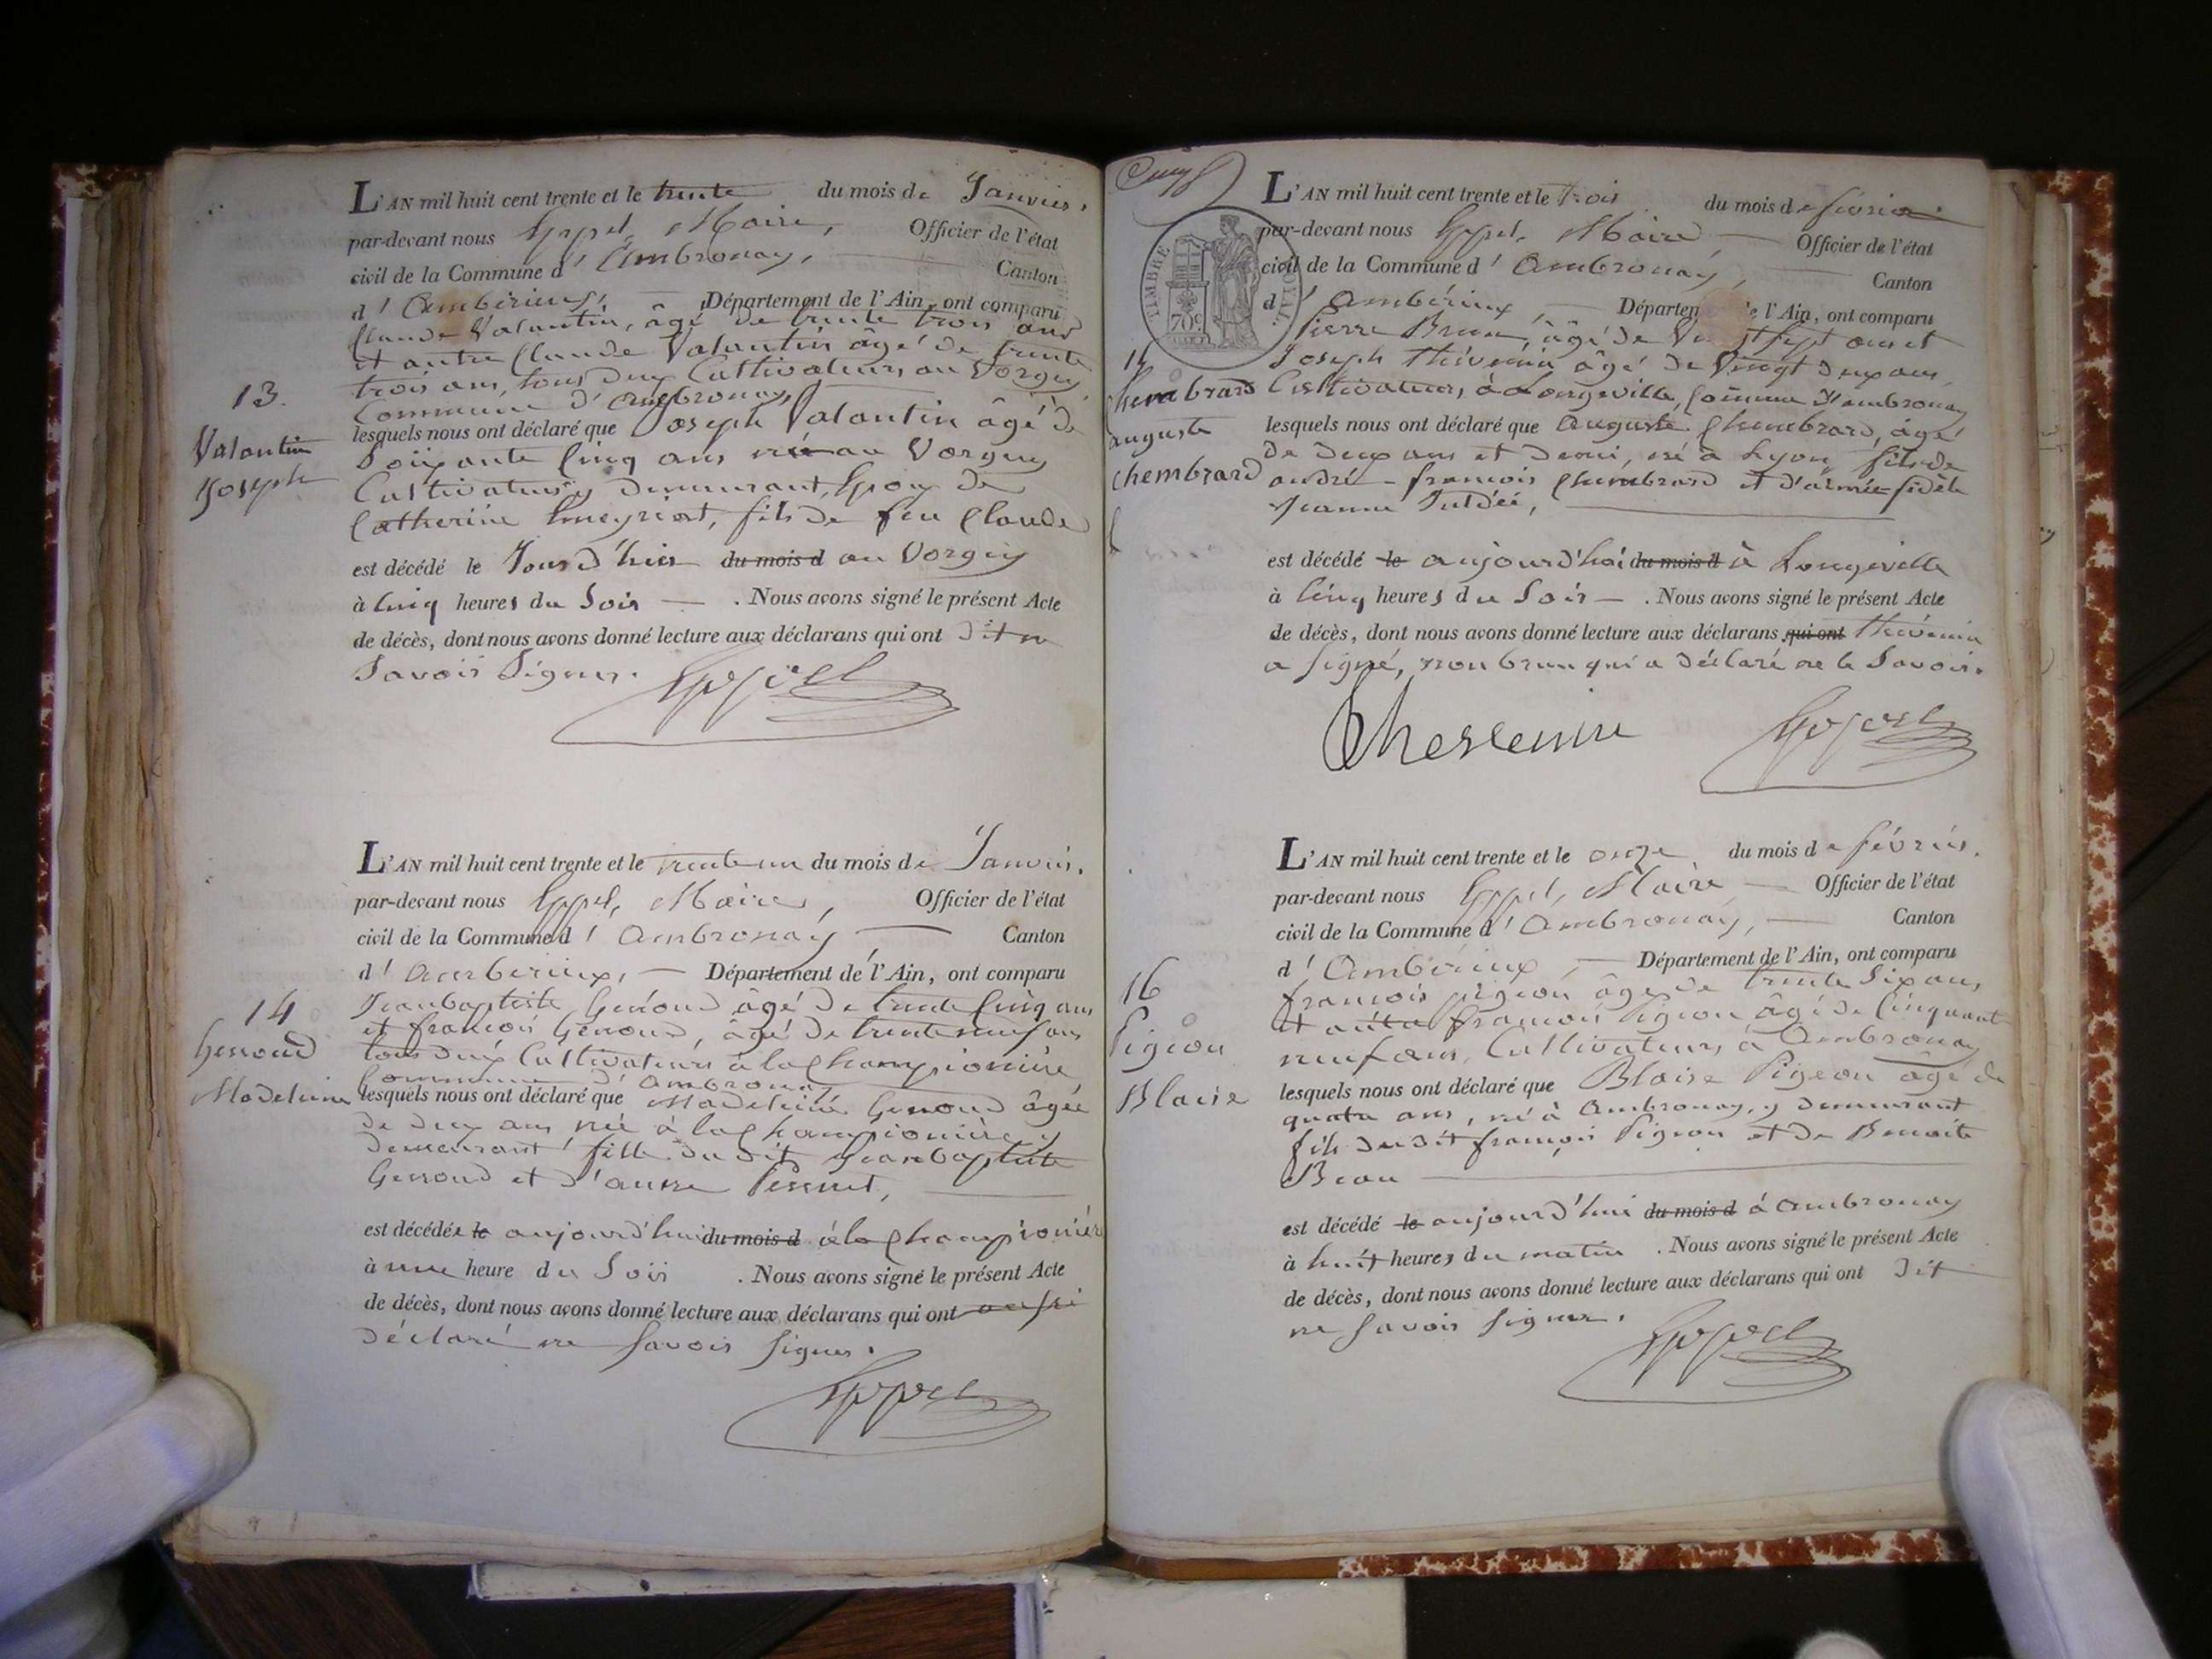 L'AN mil huit cent trente et le trente du mois de Janvier,
par-devant nous Goppel, Maire, Officier de l'état
civil de la Commune d'Ambronay, Canton
d'Ambérieux, Département de l'Ain, ont comparu
Claude Valantin, âgé de trente trois ans
et autre Claude Valantin âgé de trente
trois ans, tous deux Cultivateurs au Vorgey
Commune d'Ambronay,
13.
Valantin
Joseph
lesquels nous ont déclaré que Joseph Valantin âgé de
Soixante cinq ans né au Vorgey
Cultivateur y demeurant, Epoux de
Catherine, fils de feu Claude
est décédé le Jour d'hier du mois d au Vorgey
à cinq heures du Soir . Nous avons signé le présent Acte
de décès, dont nous avons donné lecture aux déclarans qui ont dit ne
Savoir Signer.
L'AN mil huit cent trente et le trente un du mois de Janvier.
par-devant nous Goppel, Maire, Officier de l'état
civil de la Commune d'Ambronay Canton
d'Ambérieux, Département de l'Ain, ont comparu
Jeanbaptiste Genoud âgé de trente cinq ans
et françois Genoud, âgé de trente neuf ans
tous deux Cultivateurs à la Championière
Commune d'Ambronay
14
Genoud
Madeleine
lesquels nous ont déclaré que Madeleine Genoud âgée
de deux ans née à la Championière y
demeurant fille du dit Jeanbaptiste
Genoud et d'anne Pernet,
est décédée le aujourd'hui du mois d à la Championière
à une heure du Soir . Nous avons signé le présent Acte
de décès, dont nous avons donné lecture aux déclarans qui ont aussi
déclaré ne Savoir Signer.
L'AN mil huit cent trente et le trois du mois de février.
par-devant nous Goppel, Maire Officier de l'état
civil de la Commune d'Ambronay, Canton
d'Ambérieux, Département de l'Ain, ont comparu
TIMBRE ROYAL.
70 c.
Pierre Brun, âgé de Vingt sept ans et
Joseph Thévenin âgé de Vingt deux ans,
Cultivateurs, à Longeville, Commune d'ambronay
Chenebrard
auguste
chembrard
lesquels nous ont déclaré que Auguste Chenebrard, âgé
de deux ans et demi, né à Lyon, fils de
andré-francois Chenebrard et d'aimée-fidèle
Jeanne,
est décédé le aujourd'hui du mois d à Longeville
à cinq heures du Soir . Nous avons signé le présent Acte
de décès, dont nous avons donné lecture aux déclarans qui ont Thévenin
a signé, non brun qui a déclaré ne le Savoir.
L'AN mil huit cent trente et le onze du mois de février.
par-devant nous Goppel, Maire Officier de l'état
civil de la Commune d'Ambronay, Canton
d'Ambérieux, Département de l'Ain, ont comparu
francois pigeon âgé de trente Six ans,
et autre francois Pigeon âgé de Cinquante
neuf ans, Cultivateurs à Ambronay
16
Pigeon
Blaise
lesquels nous ont déclaré que Blaise Pigeon âgé de
quatre ans, né à Ambronay, y demeurant
fils du dit françois Pigeon et de Benoite
Beau
est décédé le aujourd'hui du mois d à Ambronay
à huit heures du matin . Nous avons signé le présent Acte
de décès, dont nous avons donné lecture aux déclarans qui ont dit
ne Savoir Signer.